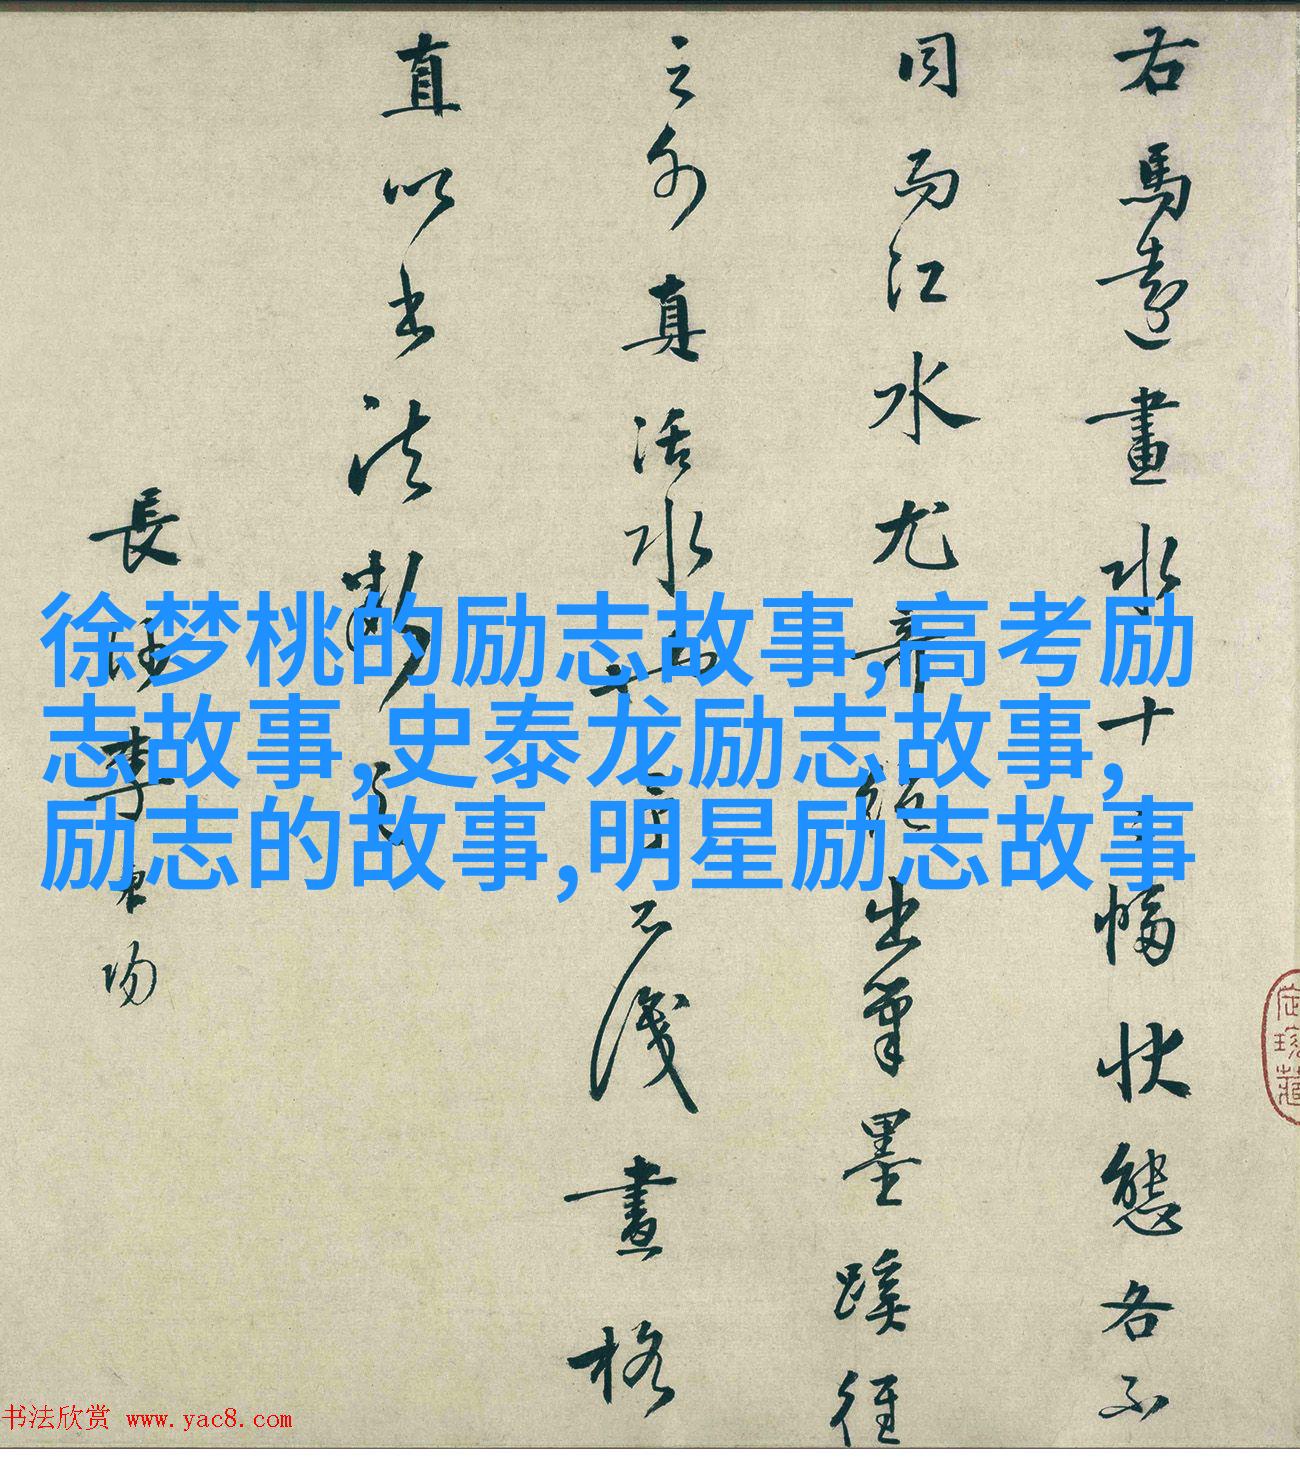 徐梦桃的励志故事,高考励
志故事,史泰龙励志故事,
励志的故事,明星励志故事
右馬遠畫水十二幅狀態各不
同而江水尤奇絕出筆墨蹊徑
之外真活水也予不識畫格
直以書法斷之
長沙李東陽
书法欣赏 www.yac8.com